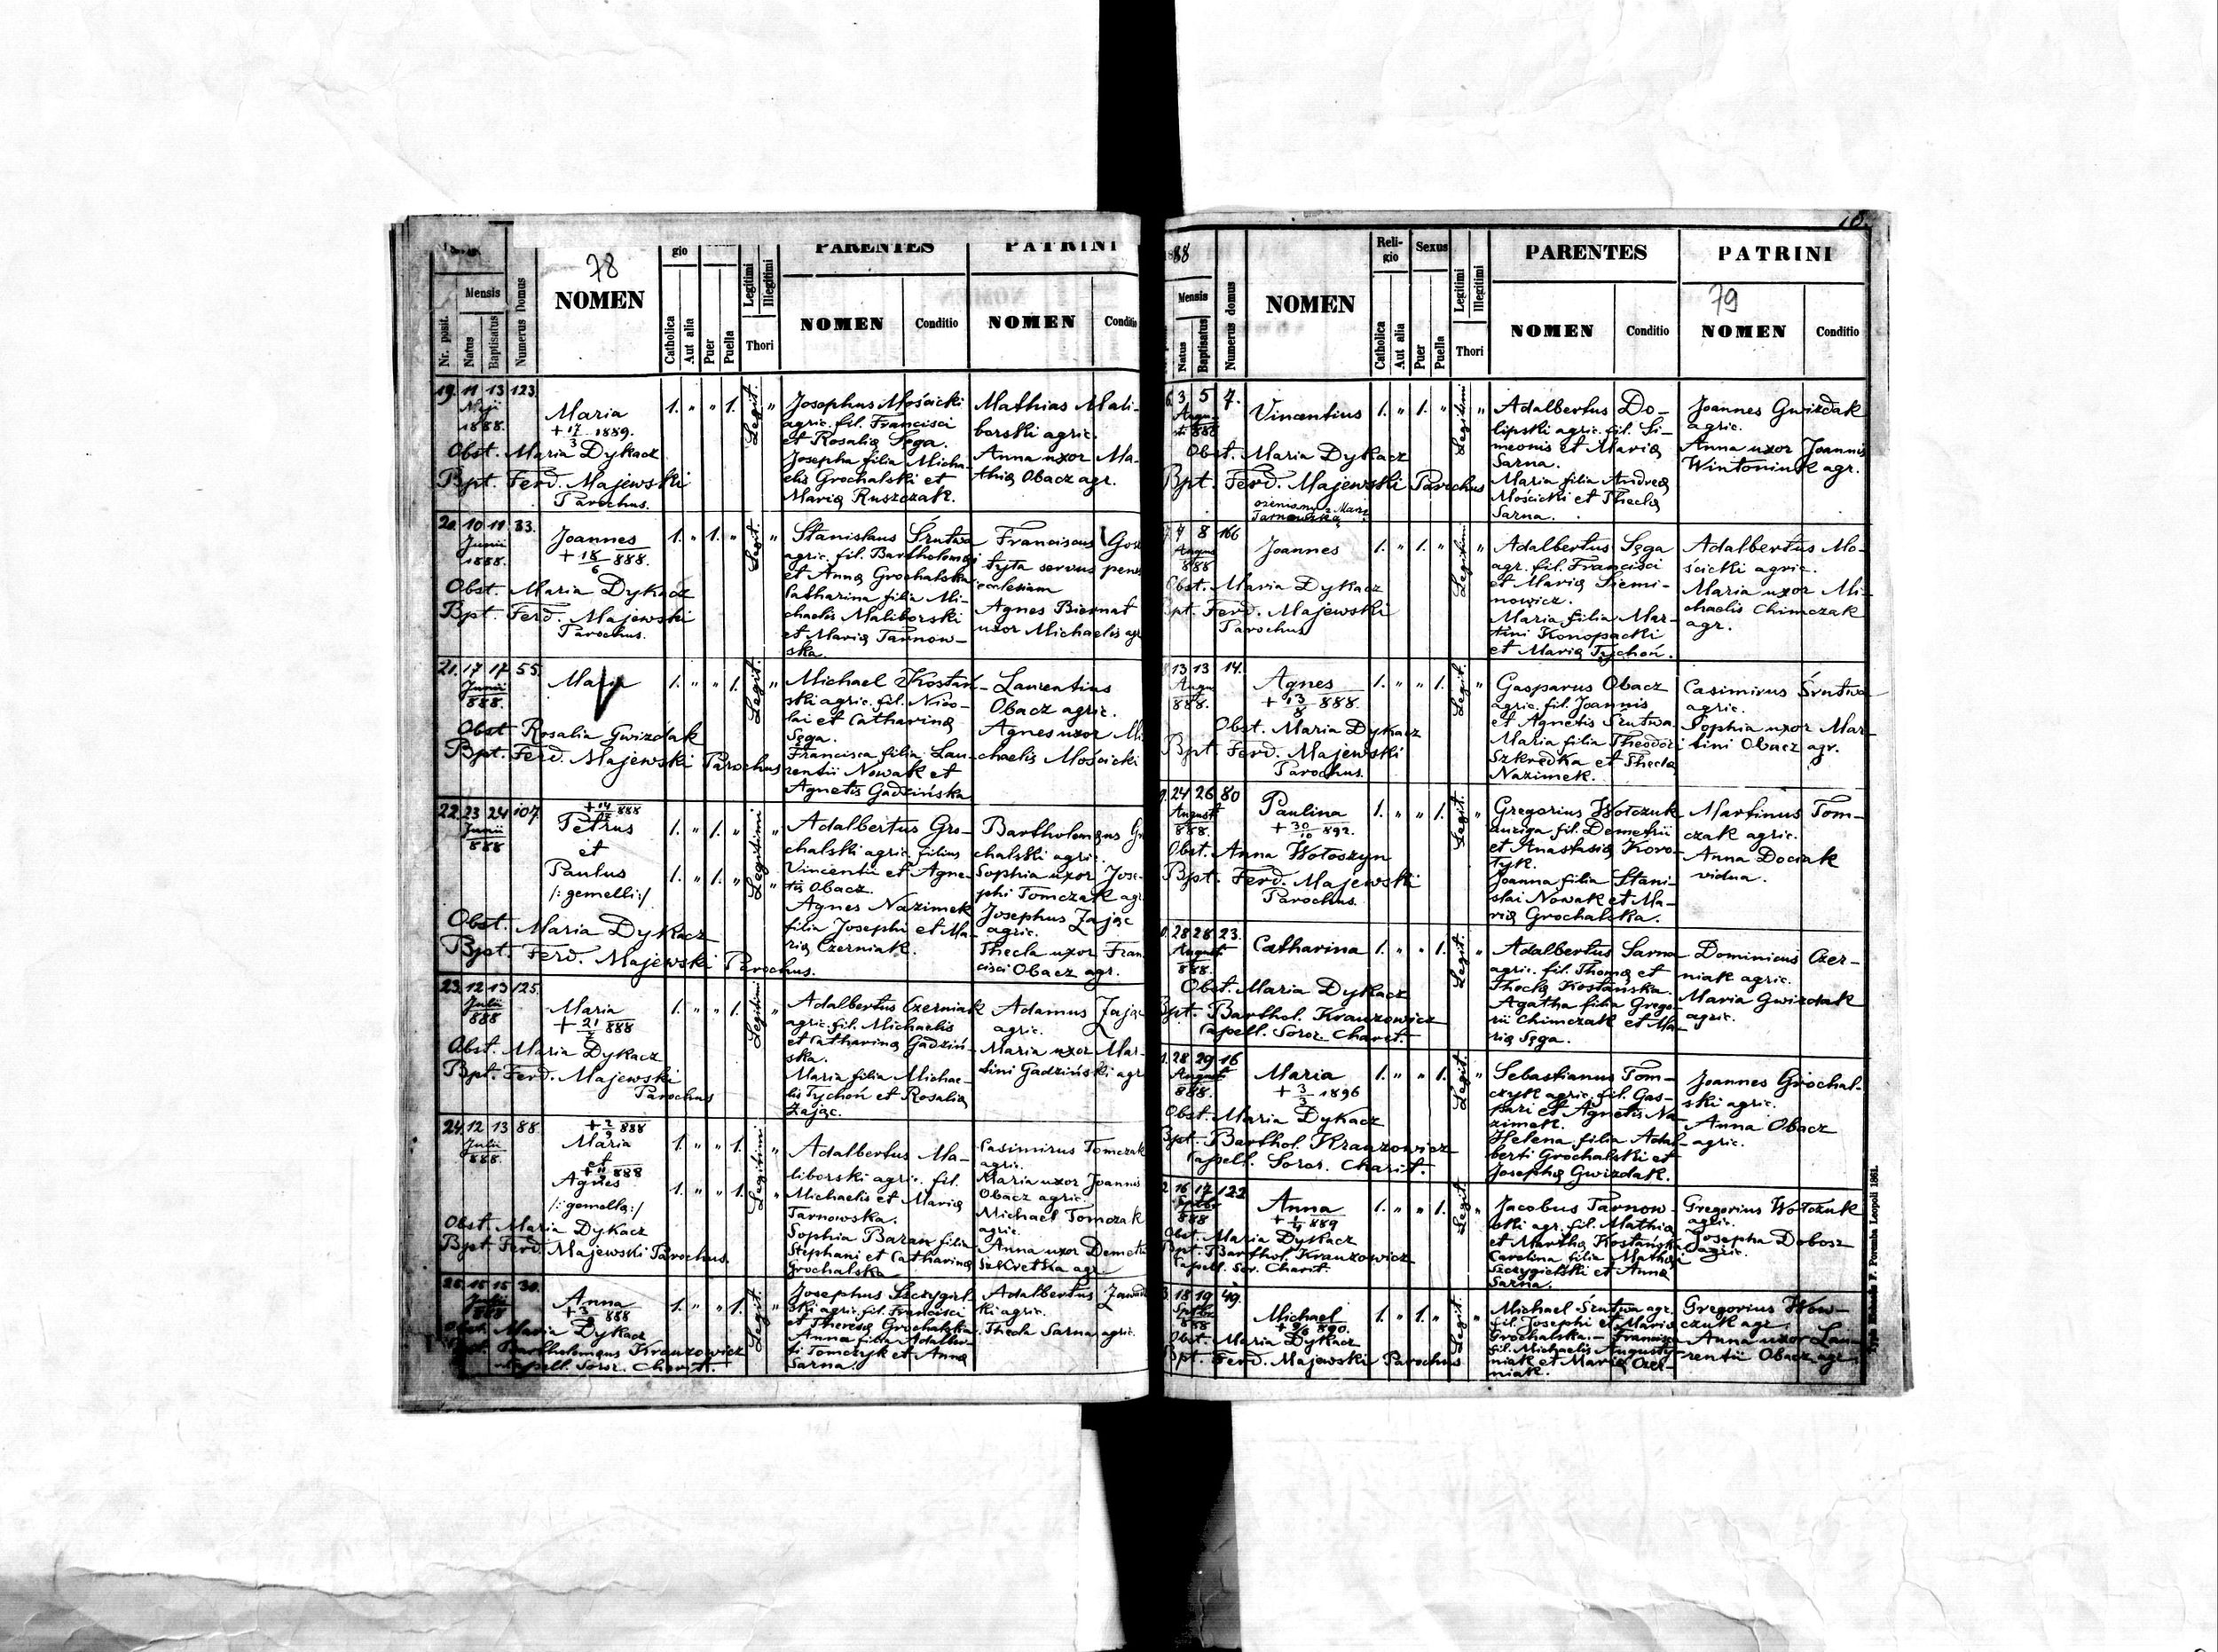 78
Mensis
Nr. posit.
Natus
Baptisatus
Numerus Domus
NOMEN
gio
Catholica
Aut alia
Puer
Puella
Legitimi
Illegitimi
Thori
PARENTES
NOMEN
Conditio
PATRINI
NOMEN
19. 11 13 123.
Maji
1888.
Maria
+ 17/3 1889.
1. " " 1. Legit. "
Obst. Maria Dykacz
Bpt. Ferd. Majewski
Parochus.
Josephus Mościcki
agric. fil. Francisci
et Rosalia Sęga.
Josepha filia Micha-
elis Grochalski et
Maria Ruszczak.
Mathias Mali-
borski agric.
Anna uxor Ma-
thia Obacz agr.
20. 10 11 33.
Junii
1888.
Joannes
+ 18/6 888.
1. " 1. " Legit. "
Obst. Maria Dykacz
Bpt. Ferd. Majewski
Parochus.
Stanislaus Śrutwa
agric. fil. Bartholomæi
et Anna Grochalska
Catharina filia Mi-
chaelis Maliborski
et Maria Tarnow-
ska.
Franciscus
servus
ecclesiam
Agnes Biernat
uxor Michaelis agr
21. 17 17 55.
Junii
888.
Maria
1. " " 1. Legit. "
Obst Rosalia Gwizdak
Bpt. Ferd. Majewski Parochus
Michael Kostań-
ski agric. fil. Nico-
lai et Catharina
Sęga.
Francisca filia Lau-
rentii Nowak et
Agnetis Gadzińska
Laurentius
Obacz agric.
Agnes uxor Mi
chaelis Mościcki
22. 23 24 107.
Junii
888
Petrus
et
Paulus
/: gemelli:/
1. " 1. " Legitimi "
1. " 1. "
Obst. Maria Dykacz
Bpt. Ferd. Majewski Parochus.
Adalbertus Gro-
chalski agric. filius
Vincentii et Agne-
tis Obacz.
Agnes Nazimek
filia Josephi et Ma-
ria Czerniak.
Bartholomæus Gro
chalski agric.
Sophia uxor Jose-
phi Tomczak agr.
Josephus Zając
agric.
Thecla uxor Fran-
cisci Obacz agr.
23. 12 13 125.
Julii
888
Maria
1. " " 1. Legitimi "
Obst. Maria Dykacz
Bpt. Ferd. Majewski
Parochus
Adalbertus Czerniak
agric. fil. Michaelis
et Catharina Gadziń-
ska.
Maria filia Michae-
lis Tychoń et Rosalia
Zając.
Adamus Zając
agric.
Maria uxor Mar-
tini Gadziński agr
24. 12 13 88.
Julii
888.
Maria
et
Agnes
/: gemella:/
1. " " 1. Legitimi "
1. " " 1. "
Obst. Maria Dykacz
Bpt Ferd. Majewski Parochus.
Adalbertus Ma-
liborski agric. fil.
Michaelis et Maria
Tarnowska.
Sophia Baran filia
Stephani et Catharina
Grochalska
Casimirus Tomczak
agric.
Maria uxor Joannis
Obacz agric.
Michael Tomczak
agric.
Anna uxor Demetri
Szkretka agr.
25. 15 15 30.
Julii
888
Anna
1. " " 1. Legit. "
Obst. Maria Dykacz
Bpt. Bartholomæus Kranzowicz
Capell. Soror. Charit.
Josephus Szczygiel-
ski agric. fil. Francisci
et Theresa Grochalska
Anna filia Adalber-
ti Tomczyk et Anna
Sarna.
Adalbertus
ki agric.
Thecla Sarna agric.
1888
79
Mensis
Natus
Baptisatus
Numerus domus
NOMEN
Reli-
gio
Catholica
Aut alia
Sexus
Puer
Puella
Legitimi
Illegitimi
Thori
PARENTES
NOMEN
Conditio
PATRINI
NOMEN
Conditio
3 5 7.
Augu-
sti 888
Vincentius
1. " 1. " Legitimi "
Obst. Maria Dykacz
Bpt. Ferd. Majewski Parochus
Adalbertus Do-
lipski agric. fil. Si-
meonis et Maria
Sarna.
Maria filia Andrea
Mościcki et Thecla
Sarna.
Joannes Gwizdak
agric.
Anna uxor Joannis
Wintoniuk agr.
7 8 166
August
888
Joannes
1. " 1. " Legitimi "
Obst. Maria Dykacz
Bpt. Ferd. Majewski
Parochus
Adalbertus Sęga
agr. fil. Francisci
et Maria Siemi-
nowicz.
Maria filia Mar-
tini Konopacki
et Maria Tychoń.
Adalbertus Mo-
ścicki agric.
Maria uxor Mi-
chaelis Chimczak
agr.
13 13 14.
Augu
888.
Agnes
+ 13/8 888.
1. " " 1. Legit. "
Obst. Maria Dykacz
Bpt. Ferd. Majewski
Parochus.
Gasparus Obacz
agric. fil. Joannis
et Agnetis Śrutwa.
Maria filia Theodori
Szkredka et Thecla
Nazimek.
Casimirus Śrutwa
agric.
Sophia uxor Mar-
tini Obacz agr.
24 26 80
August
888.
Paulina
+ 30/10 892.
1. " " 1. Legit. "
Obst. Anna Wołoszyn
Bpt. Ferd. Majewski
Parochus.
Gregorius Wołczuk
auriga fil. Demetrii
et Anastasia Koro-
tyk.
Joanna filia Stani-
slai Nowak et Ma-
ria Grochalska.
Martinus Tom-
czak agric.
Anna Dociak
vidua.
28 28 23.
August
888.
Catharina
1. " " 1. Legit. "
Obst. Maria Dykacz
Bpt. Barthol. Kranzowicz
Capell. Soror. Charit.
Adalbertus Sarna
agric. fil. Thoma et
Thecla Kostańska.
Agatha filia Grego-
rii Chimczak et Ma-
ria Sęga.
Dominicus Czer-
niak agric.
Maria Gwizdak
agric.
28 29 16
August
888.
Maria
+ 3/3 1896
1. " " 1. Legit. "
Obst. Maria Dykacz
Bpt. Barthol. Kranzowicz
Capell. Soror. Charit.
Sebastianus Tom-
czyk agric. fil. Gas-
pari et Agnetis Na-
zimek.
Helena filia Adal-
berti Grochalski et
Josepha Gwizdak.
Joannes Grochal-
ski agric.
Anna Obacz
agric.
16 17 122
888
Anna
1. " " 1. Legit "
Obst. Maria Dykacz
Bpt. Barthol. Kranzowicz
Capell. Sor. Charit.
Jacobus Tarnow-
ski agr. fil. Mathia
et Martha Kostańska
Carolina filia Mathai
Szczygielski et Anna
Sarna.
Gregorius Wołczuk
agric.
Josepha Dobosz
agric.
18 19 49.
888
Michael
1. " 1. " Legit. "
Obst. Maria Dykacz
Bpt. Ferd. Majewski Parochus
Michael Śrutwa agr.
fil. Josephi et Maria
Grochalska. – Francisca
fil. Michaelis Augusty-
niak et Maria Czer-
niak.
Gregorius Wow-
czuk agr.
Anna uxor Lau-
rentii Obacz agr.
Typis Richards F. Poremba Leopoli 1861.